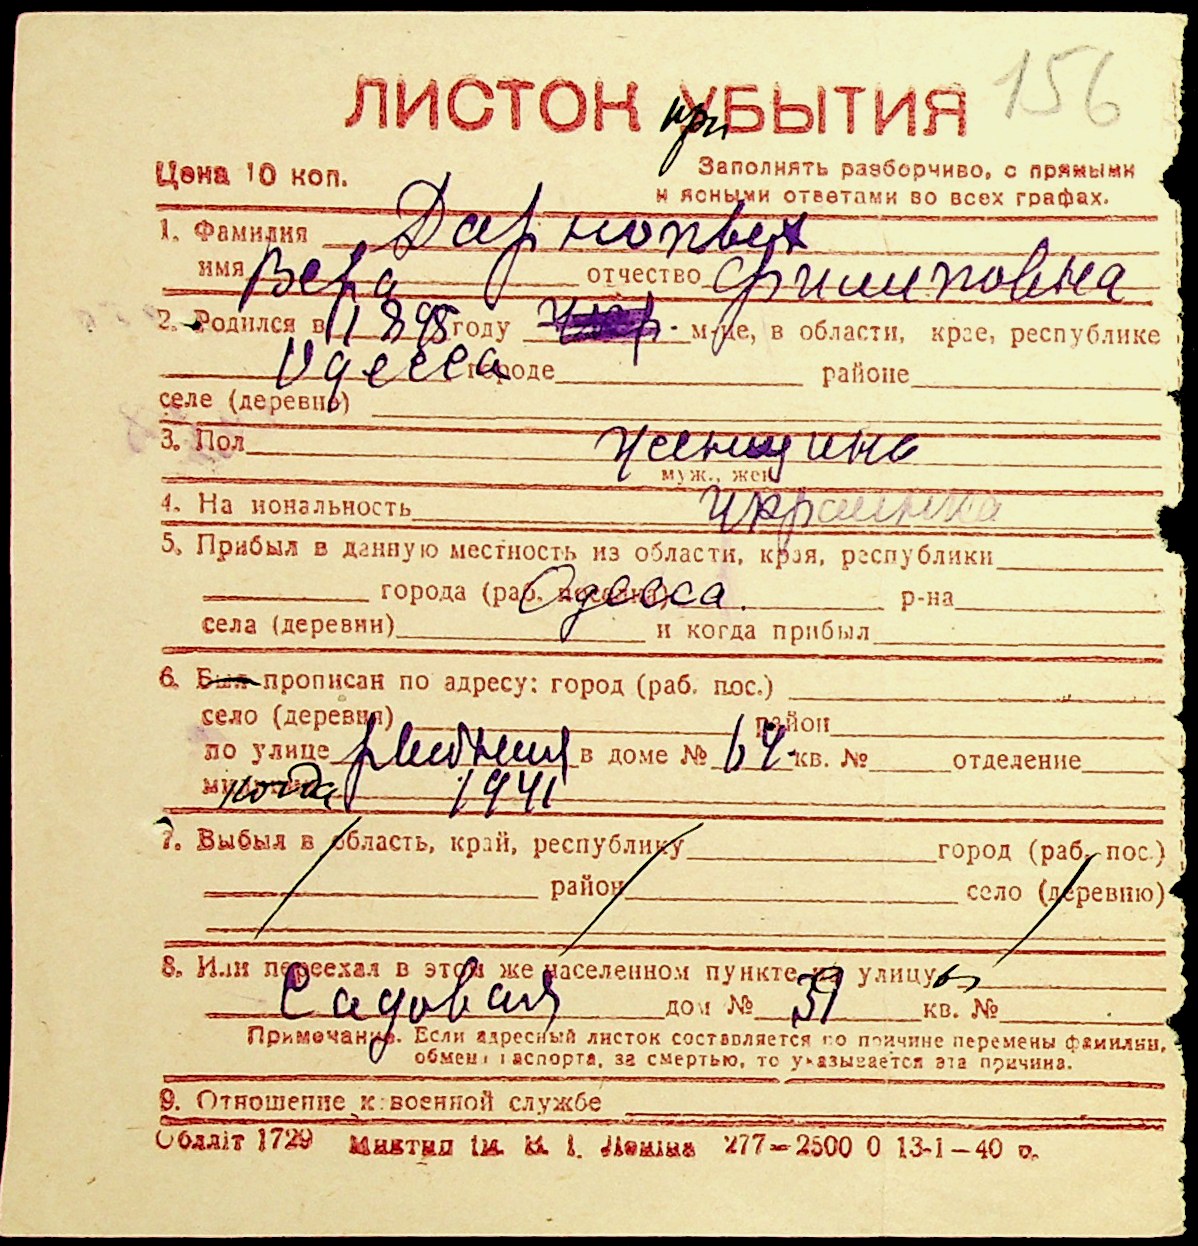 156
ЛИСТОК при УБЫТИЯ
Цена 10 коп.
Заполнять разборчиво, с прямыми
и ясными ответами во всех графах.
1. Фамилия
имя Вера отчество Филиповна
2. Родился в 1895 году м-це, в области, крае, республике
Одесса городе районе
селе (деревне)
3. Пол женщина
муж., жен
4. Национальность украинка
5. Прибыл в данную местность из области, края, республики
города (раб. поселки) Одесса р-на
села (деревни) и когда прибыл
6. Был прописан по адресу: город (раб. пос.)
село (деревня) район
по улице в доме № 64 кв. № отделение
когда 1941
7. Выбыл в область, край, республику город (раб. пос.)
район село (деревню)
8. Или переехал в этом же населенном пункте на улицу
Садовая дом № 39 кв. №
Примечание. Если адресный листок составляется по причине перемены фамилии,
обмена паспорта, за смертью, то указывается эта причина.
9. Отношение к военной службе
Обллiт 1729 iм. В. I. Ленiна 277—2500 0 13-1—40 р.